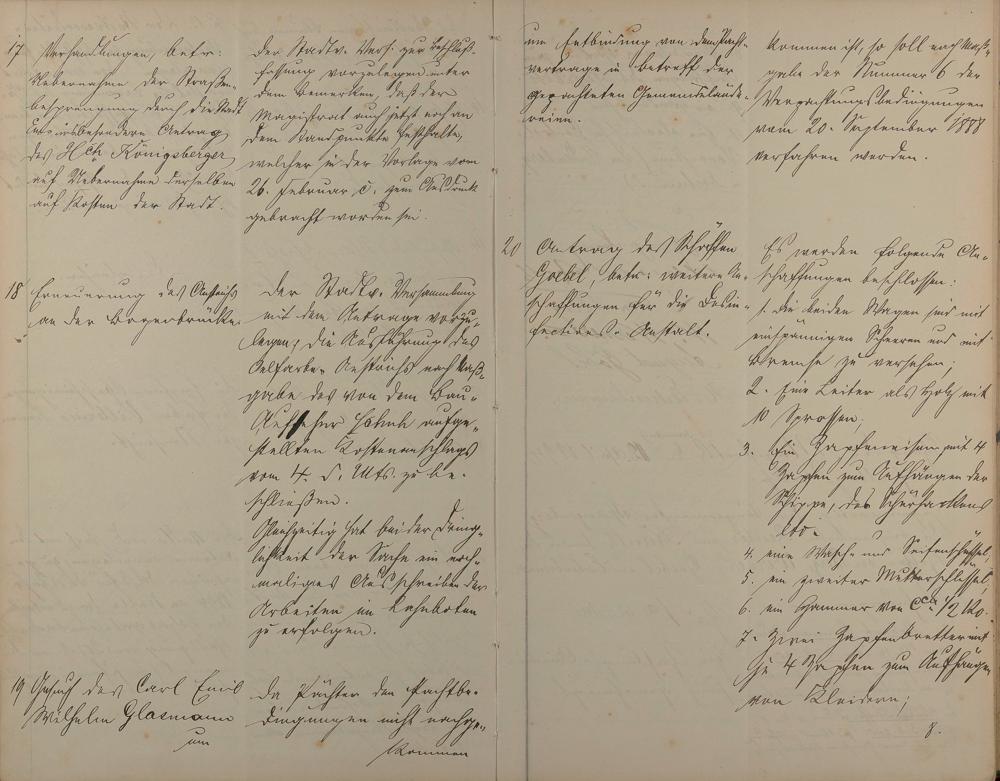 17 Verhandlungen, betr:
Uebernahme der Straßen-
besprengung durch die Stadt
insbesondere Antrag
des Hch Königsberger
auf Uebernahme derselben
auf Kosten der Stadt.
der Stadtv. Vers. zur Beschluß-
fassung vorzulegen unter
dem Bemerken, daß der
Magistrat auch jetzt noch an
dem Standpunkte festhalte,
welcher in der Vorlage vom
26. Februar c. zum Ausdruck
gebracht worden sei.
18 Erneuerung des Anstrichs
an der Bogenbrücke.
Der Stadtv. Versammlung
mit dem Antrage vorzu-
legen, die Ausführung des
Oelfarben Anstrichs nach Maß-
gabe des von dem Bau-
Aufseher aufge-
stellten Kostenanschlags
vom 4. d. Mts. zu be-
schließen.
Gleichzeitig hat bei der Dring-
lichkeit der Sache ein noch-
maliges Ausschreiben der
Arbeiten im Lahnboten
zu erfolgen.
19 Gesuch des Carl Emil
Wilhelm Glasmann
um
Da Pächter den Pachtbe-
dingungen nicht nachge-
kommen
um Entbindung von dem Pacht-
vertrage in Betreff der
gepachteten Gemeindelände-
reien.
kommen ist, so soll nach Maß-
gabe der Nummer 6 der
Verpachtungsbedingungen
vom 20. September 1888
verfahren werden.
20 Antrag des Schöffen
Goebel, betr: weitere An-
schaffungen für die Desin-
fections-Anstalt.
Es werden folgende An-
schaffungen beschlossen:
1. die beiden Wagen sind mit
einspännigen Scheeren und mit
Bremse zu versehen;
2. Eine Leiter als Holz mit
10 Sprossen;
3. Ein Zapfeneisen mit 4
Zapfen zum Aufhängen der
Schippe, des Schürhackens
etc.
4. eine Wasch- und Seifenschüssel,
5. ein zweiter Mutterschlüssel,
6. ein Hammer von Cca 1/2 Ko.
7. Zwei Zapfenbretter mit
je 4 Zapfen zum Aufhängen
von Kleidern;
8.